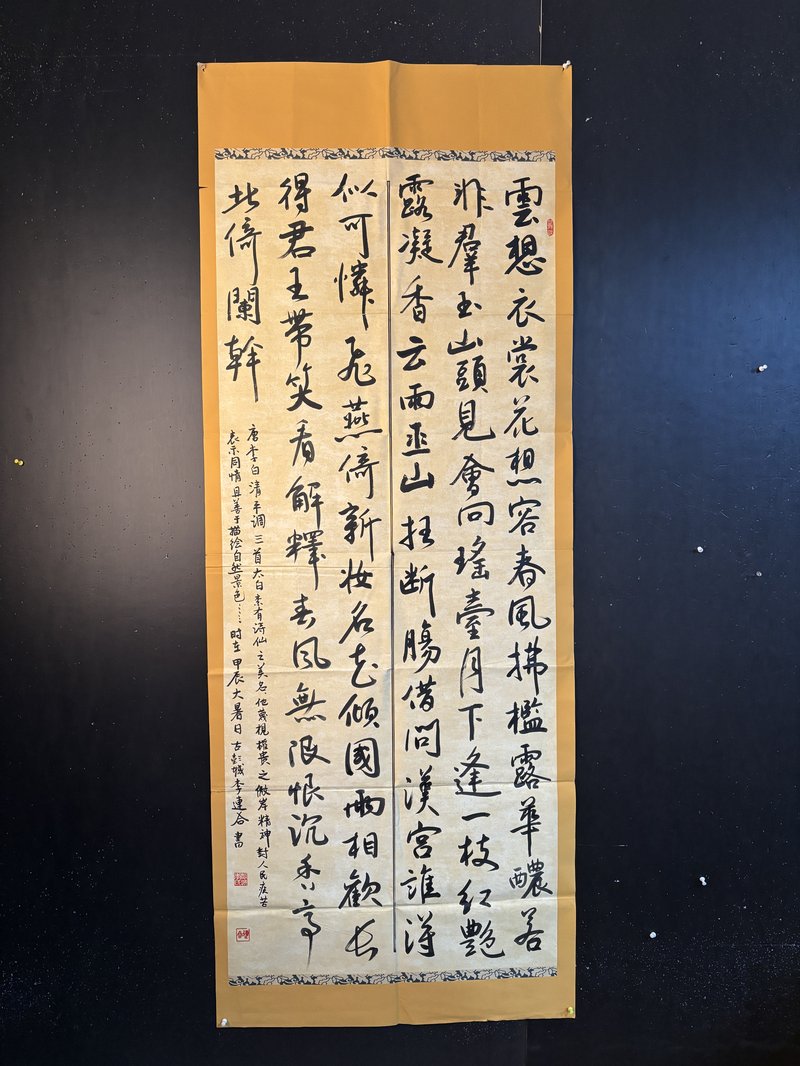 雲想衣裳花想容春風拂檻露華醲若
非羣玉山頭見會向瑤臺月下逢一枝红艷
露凝香云雨巫山枉断腸借問漢宮誰得
似可憐飛燕倚新妝名花傾國兩相歡長
得君王帶笑看解釋春风無限恨沉香亭
北倚闌幹
唐李白清平调三首太白素有诗仙之美名他蔑視權贵之傲岸精神對人民疾苦
表示同情且善于描绘自然景色……时在甲辰大暑日古彭城李連合書